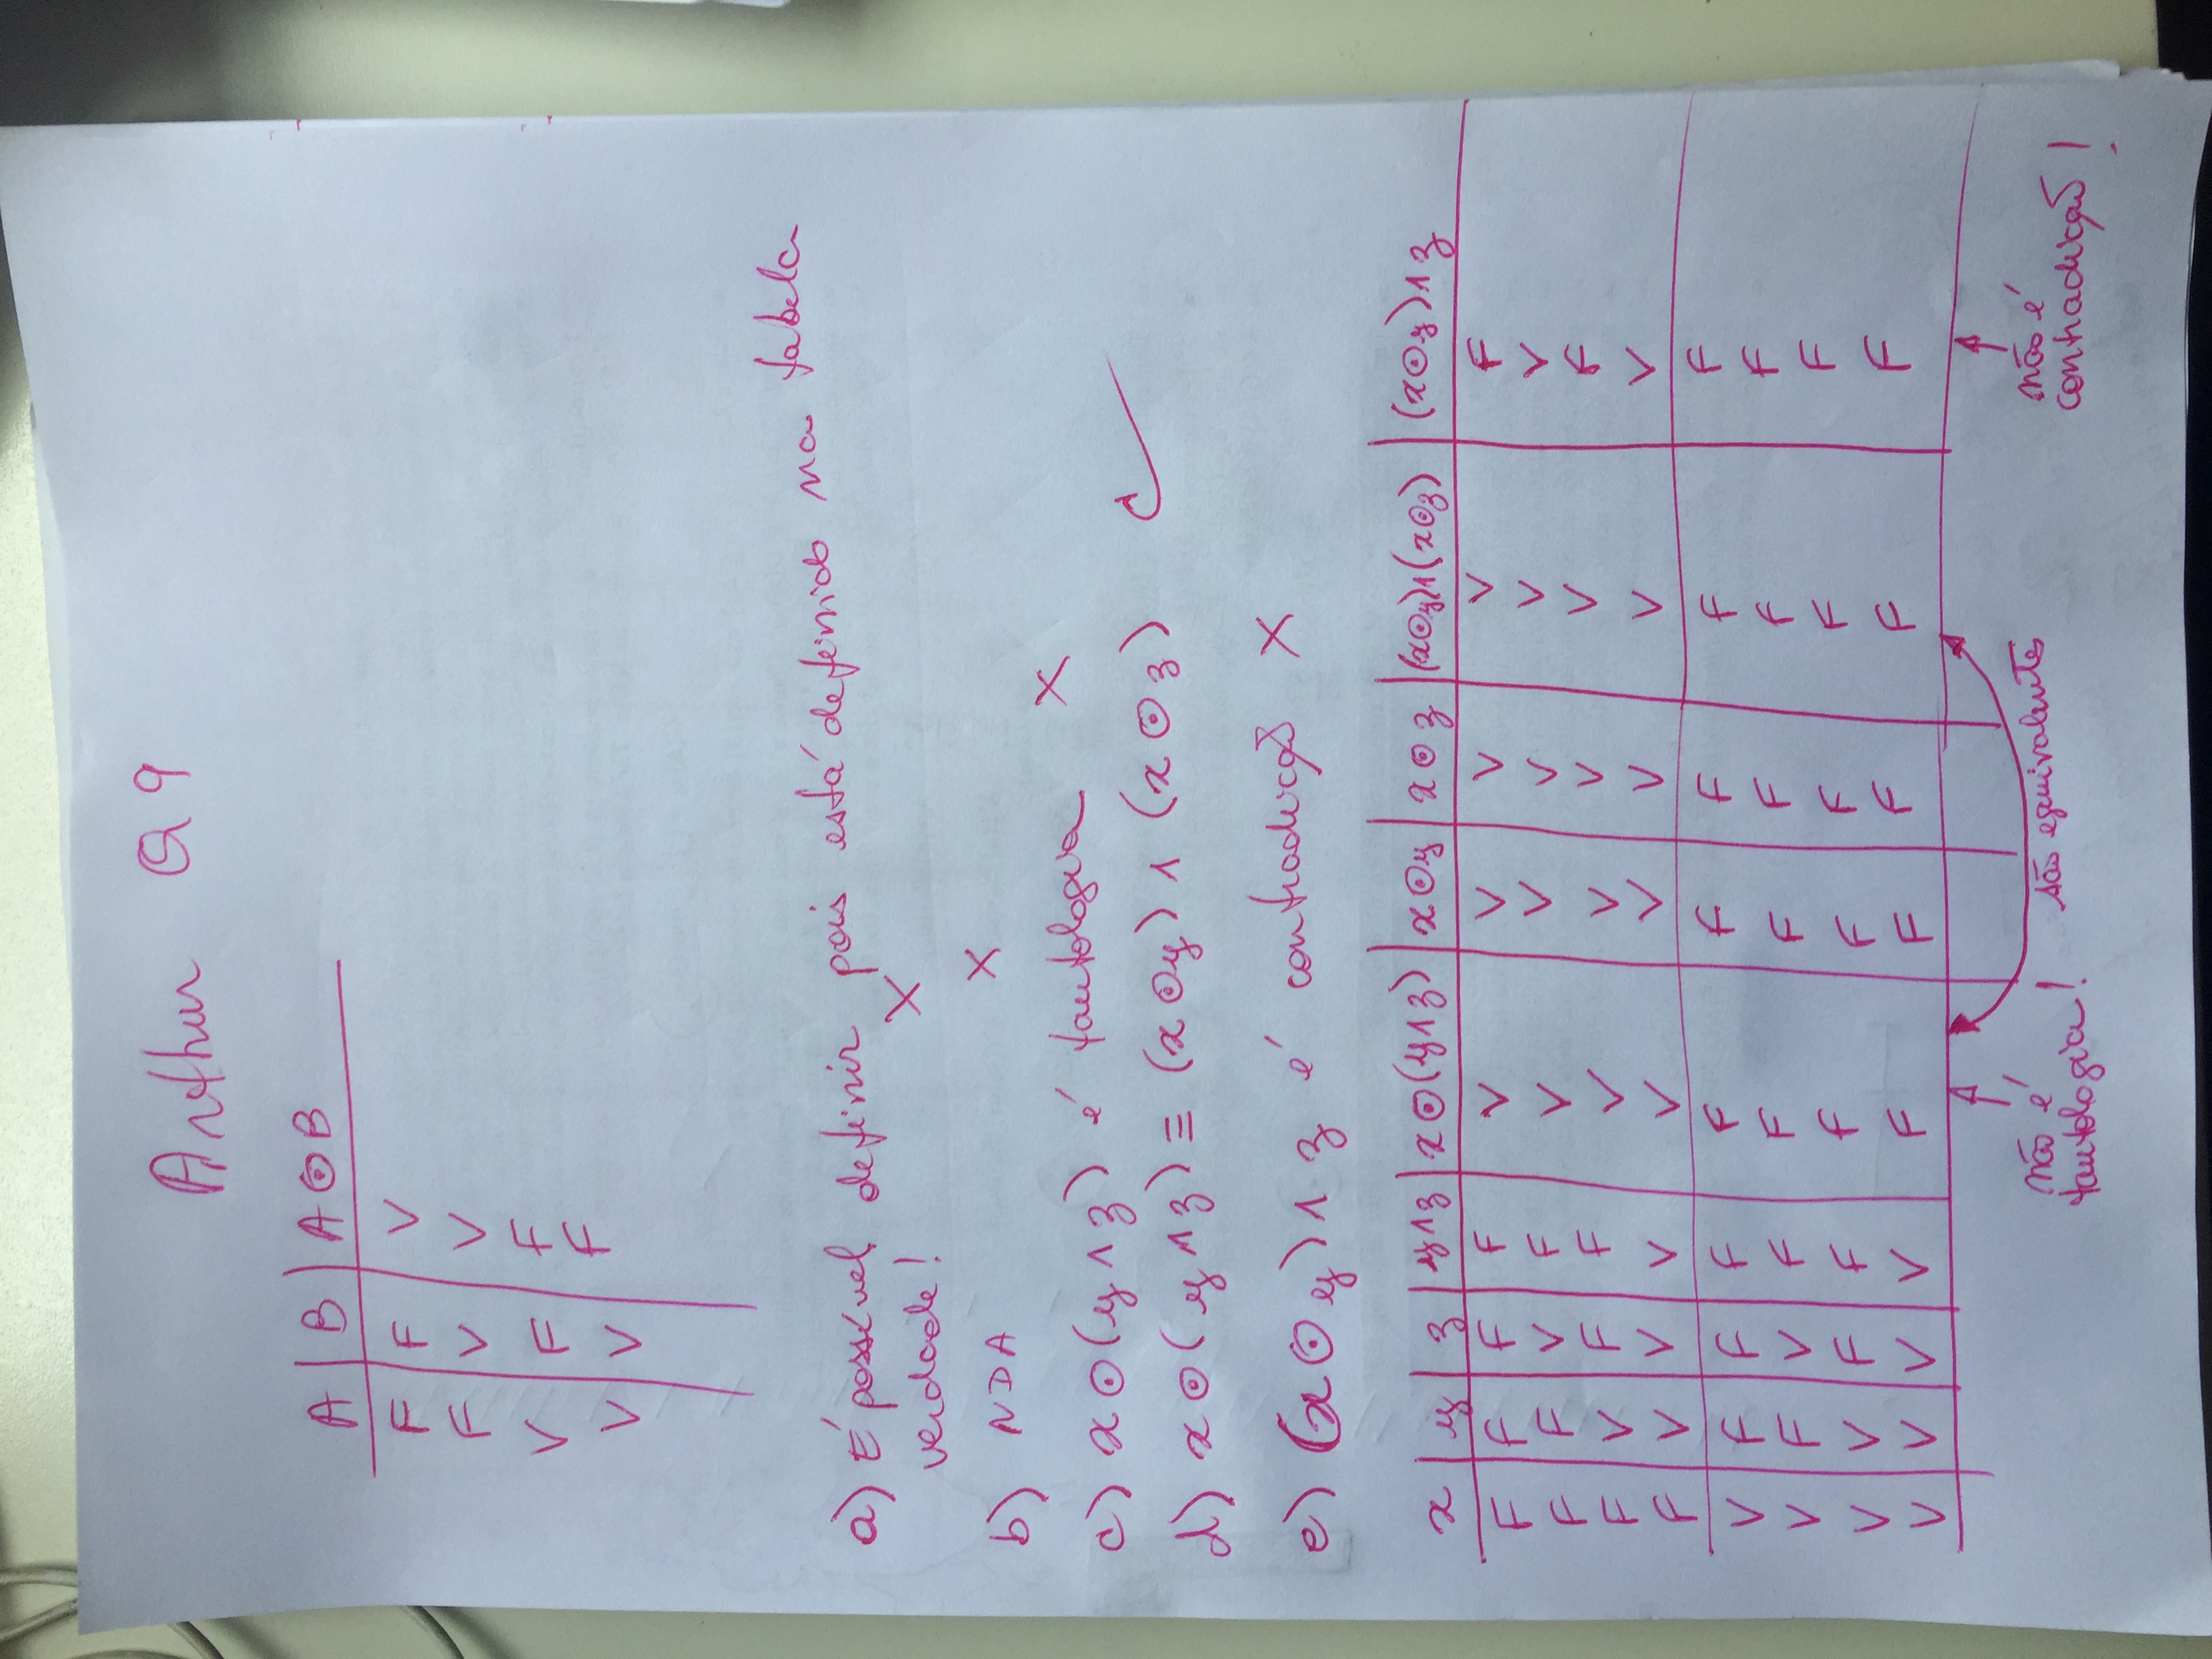 Arthur Q 9
A B A ⊙ B
F F V
F V V
V F F
V V F
a) É possível definir pois está definido na tabela
verdade! X
b) NDA X
c) x ⊙ (y ∧ z) é tautologia X
d) x ⊙ (y ∧ z) ≡ (x ⊙ y) ∧ (x ⊙ z) C
e) (x ⊙ y) ∧ z é contradição X
x y z y∧z x⊙(y∧z) x⊙y x⊙z (x⊙y)∧(x⊙z) (x⊙y)∧z
F F F F V V V V F
F F V F V V V V V
F V F F V V V V F
F V V V V V V V V
V F F F F F F F F
V F V F F F F F F
V V F F F F F F F
V V V V F F F F F
não é são equivalentes não é
tautologia! contradição!